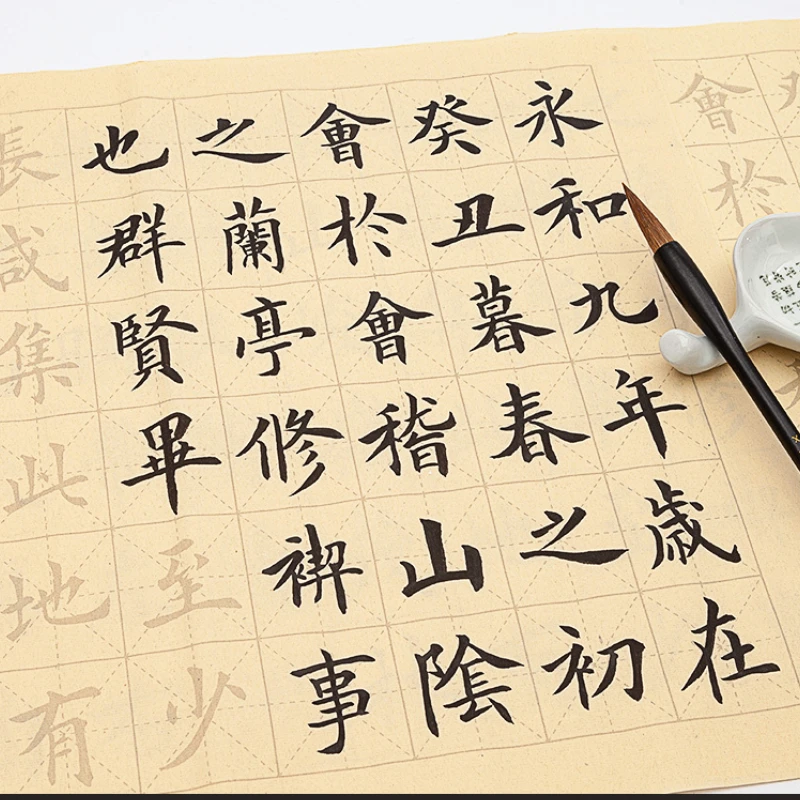 會於
永和九年歲在
癸丑暮春之初
會於會稽山陰
之蘭亭修禊事
也群賢畢至少
長咸集此地有